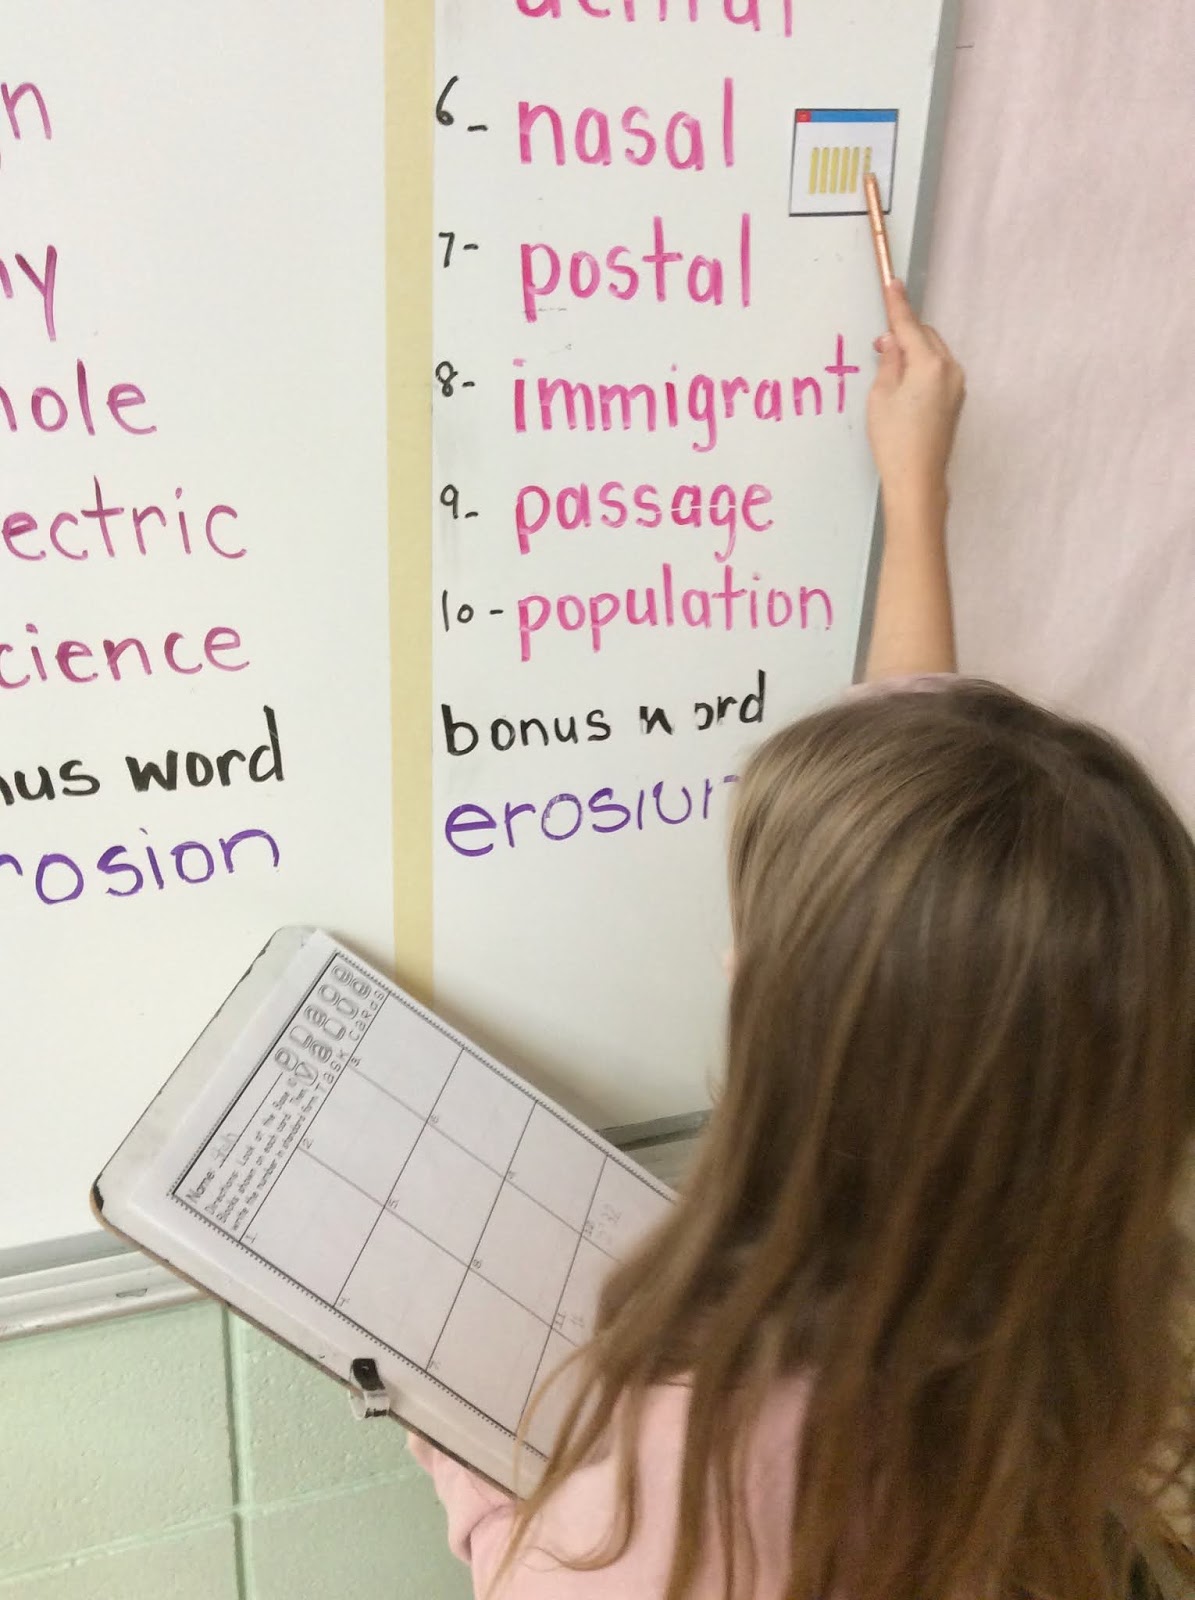 dental
6- nasal
7- postal
8- immigrant
9- passage
10- population
bonus word
erosion
ny
hole
ectric
cience
nus word
rosion
Name:
Directions: Look at the Base
Blocks shown on each card. Then
write the number in standard form.
PLACE
VALUE
TASK CARDS
1.
2.
3.
4.
5.
6.
7.
8.
9.
10.
32
11.